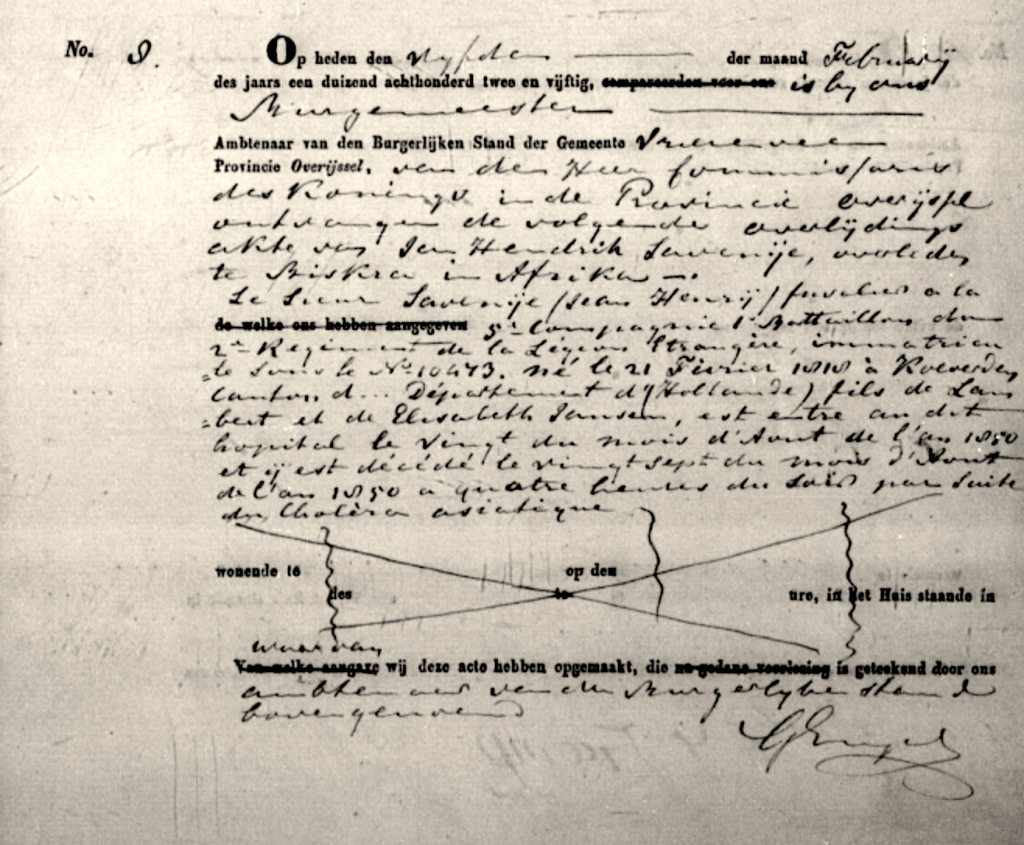 No. 9.
Op heden den vyfden der maand Februarij
des jaars een duizend achthonderd twee en vijftig, compareerden voor ons is by ons
Burgemeester
Ambtenaar van den Burgerlijken Stand der Gemeente
Provincie Overijssel, van den Heer Commissaris
des Konings in de Provincie Overijssel
ontvangen de volgende overlijdings
akte van Jan Hendrik Savenije, overleden
te Biskra in Afrika —.
Le Sieur Savenije (Jean Henrij) fuselier a la
de welke ons hebben aangegeven 5e Compagnie 1r Battaillon du
2me Regiment de la Légion Etrangère, immatricu
=lé sous le No 10473. né le 21 Février 1818 à Koevorden
canton d... Département d' (Hollande) fils de Lam
=bert et de Elisabeth Jansen, est entré au dit
hopital le vingt du mois d'Aout de l'an 1850
et ÿ est décédé le vingt sept du mois d'Aout
de l'an 1850 a quatre heures du soir par suite
du Choléra asiatique
wonende te op den
des te ure, in het Huis staande in
waarvan
Van welke aangave wij deze acte hebben opgemaakt, die na gedane voorlezing is geteekend door ons
ambtenaar van den Burgerlyken stand
bovengenoemd